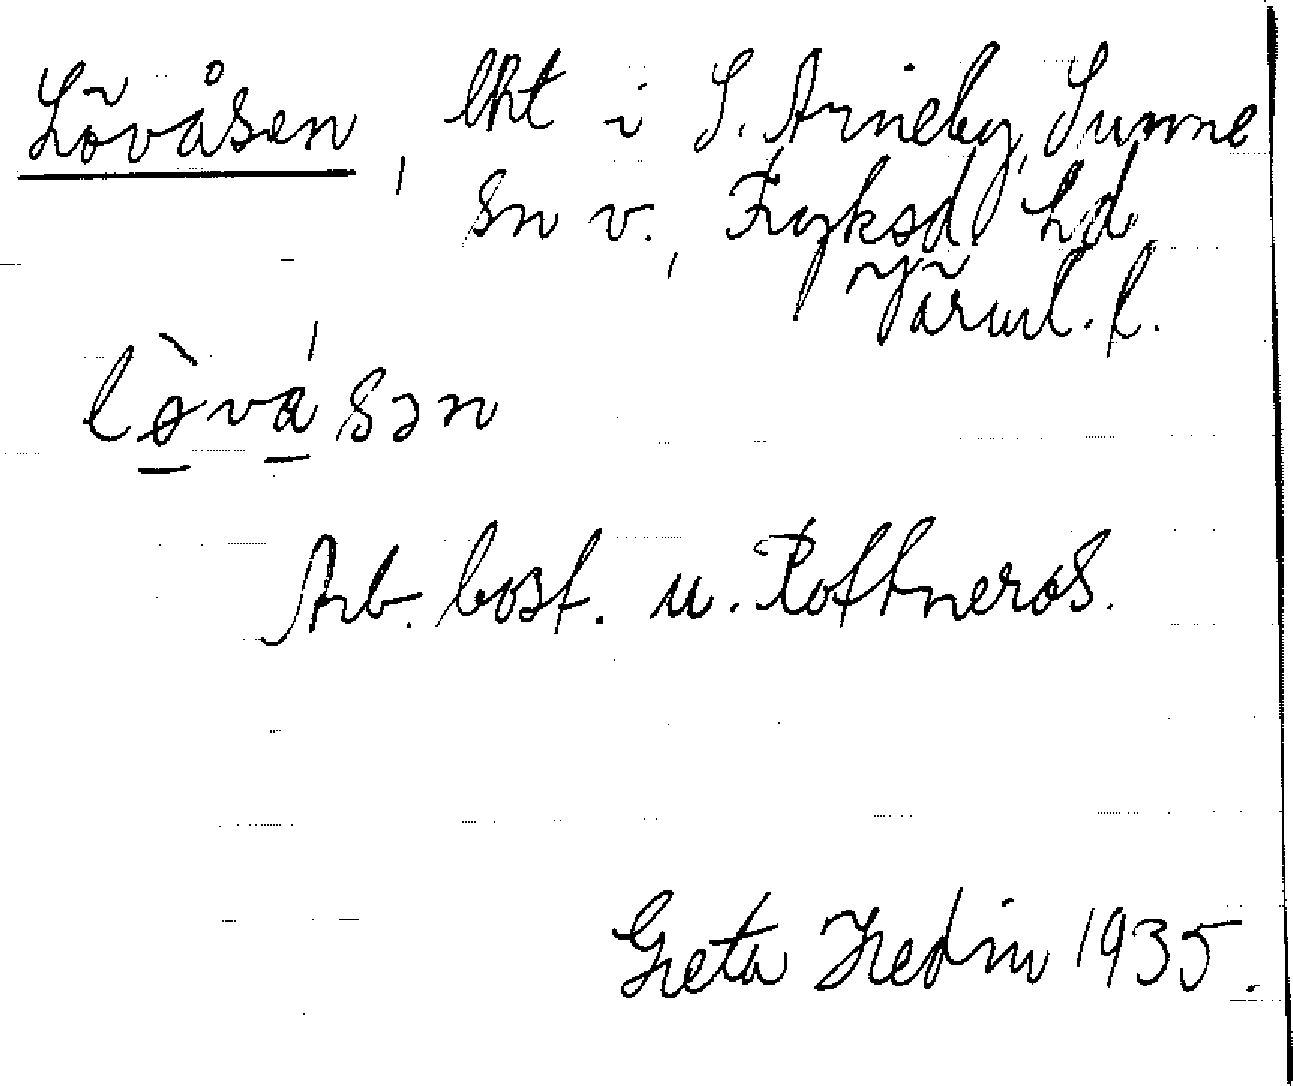 Lövåsen, lht i S. Arneby, Sunne
sn v., Fryksd. hd,
Värml. l.
lø̱̀vá̱sən
Arb. bost. u. Rottneros.
Greta Hedin 1935.